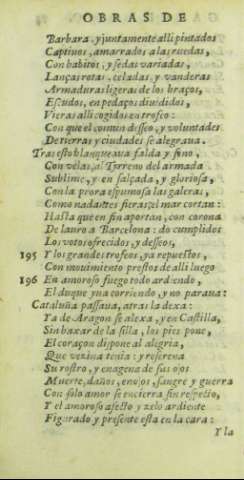 OBRAS DE
Barbara, y juntamente alli pintados
Captiuos, amarrados a las ruedas,
Con habitos, y sedas variadas,
Lanças rotas, celadas, y vanderas
Armaduras ligeras de los braços,
Escudos, en pedaços diuididos,
Vieras alli cogidos en trofeo:
Con que el comun desseo, y voluntades
De tierras y ciudades se alegraua.
Tras esto blanqueaua falda y seno,
Con velas, al Terreno del armada
Sublime, y en salçada, y gloriosa,
Con la prora espumosa las galeras,
Como nadantes fieras el mar cortan:
Hasta que en fin aportan, con corona
De lauro a Barcelona: do cumplidos
Los votos ofrecidos, y desseos,
195 Y los grandes trofeos, ya repuestos,
Con mouimiento prestos de alli luego
196 En amoroso fuego todo ardiendo,
El duque yua corriendo, y no paraua:
Cataluña passaua, atras la dexa:
Ya de Aragon se alexa, y en Castilla,
Sin baxar de la silla, los pies pone,
El coraçon dispone al alegria,
Que vezina tenia: y reserena
Su rostro, y enagena de sus ojos
Muerte, daños, enojos, sangre y guerra
Con solo amor se encierra sin respecto,
Y el amoroso afecto y zelo ardiente
Figurado y presente esta en la cara:
Y la